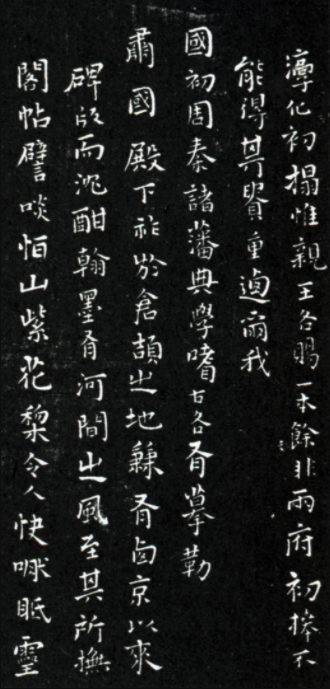 淳化初搨惟親王各賜一本餘非兩府初拜不
能得其貴重迺爾我
國初周秦諸藩典學嗜古各有摹勒
肅國殿下祚於倉頡之地兼有西京以來
碑版而沈酣翰墨有河間之風至其所撫
閣帖譬啖恒山紫花棃令人快眡靈